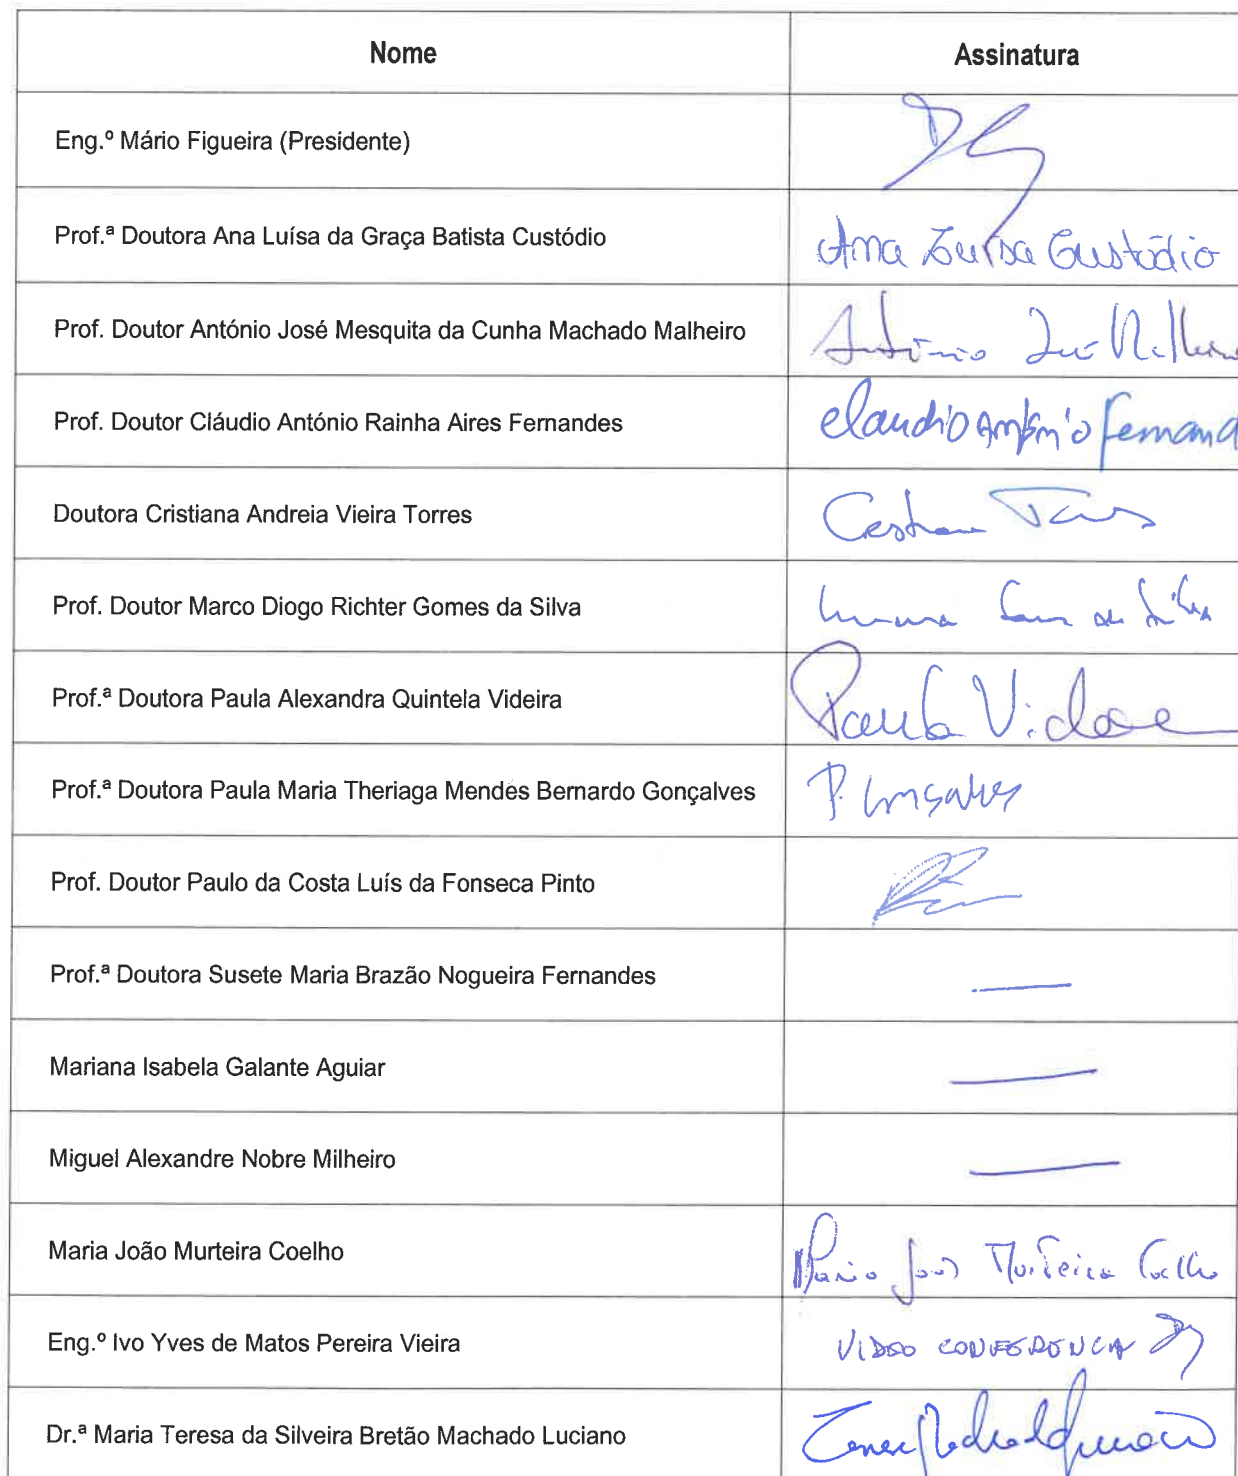 Nome Assinatura
Eng.º Mário Figueira (Presidente)
Prof.ª Doutora Ana Luísa da Graça Batista Custódio Ana Luísa Custódio
Prof. Doutor António José Mesquita da Cunha Machado Malheiro António José Malheiro
Prof. Doutor Cláudio António Rainha Aires Fernandes Claudio António Fernand
Doutora Cristiana Andreia Vieira Torres
Prof. Doutor Marco Diogo Richter Gomes da Silva
Prof.ª Doutora Paula Alexandra Quintela Videira Paula
Prof.ª Doutora Paula Maria Theriaga Mendes Bernardo Gonçalves P. Gonçalves
Prof. Doutor Paulo da Costa Luís da Fonseca Pinto
Prof.ª Doutora Susete Maria Brazão Nogueira Fernandes
Mariana Isabela Galante Aguiar
Miguel Alexandre Nobre Milheiro
Maria João Murteira Coelho Maria João Murteira Coelho
Eng.º Ivo Yves de Matos Pereira Vieira VIDEO CONFERENCIA
Dr.ª Maria Teresa da Silveira Bretão Machado Luciano